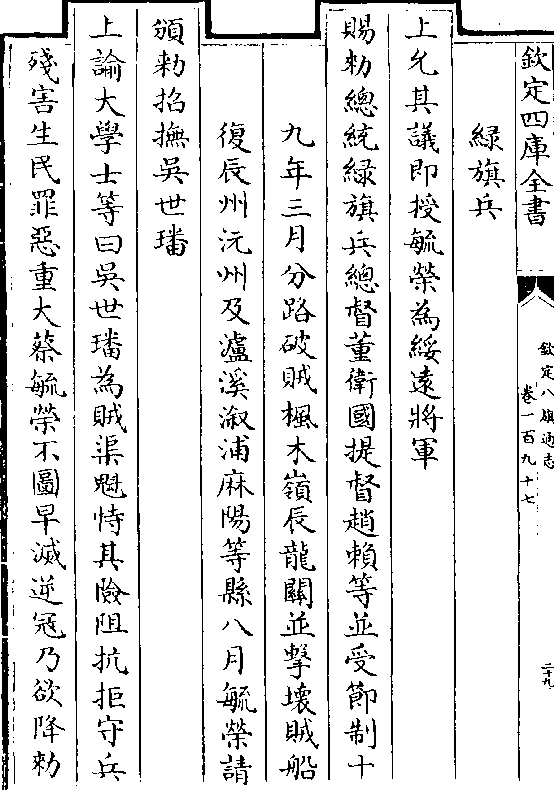 欽定四庫全書
欽定八旗通志
卷一百九十七
二九
綠旗兵
上允其議即授毓榮為綏遠將軍
賜勅總統綠旗兵總督董衛國提督趙賴等並受節制十
九年三月分路破賊楓木嶺辰龍關並擊壞賊船
復辰州沅州及瀘溪溆浦麻陽等縣八月毓榮請
頒勅招撫吳世璠
上諭大學士等曰吳世璠為賊渠魁恃其險阻抗拒守兵
殘害生民罪惡重大蔡毓榮不圖早滅逆冦乃欲降勅